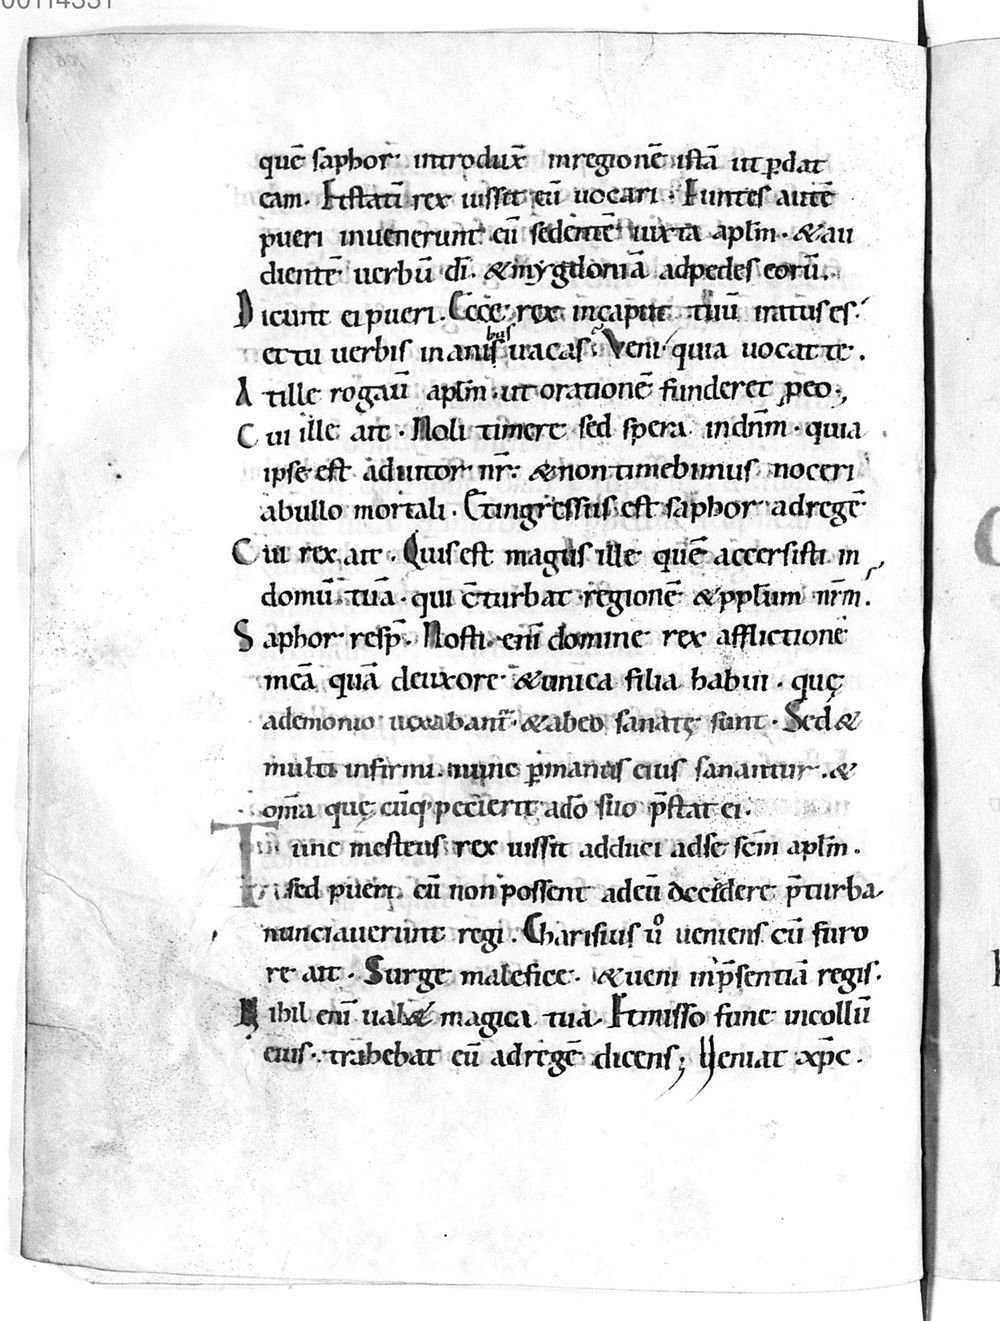 00114331
quē saphor introdux̄ inregionē istā ut ꝑdat
eam. Etstatī rex iussit eū uocari. Euntes autē
pueri inuenerunt eū sedentē iuxta aplm̄. &au
dientē uerbū dī. &mygdoniā adpedes eorū.
Dicunt ei pueri. Ecce rex incaput tuū iratus es.
et tu uerbis inanisbus uacas; Veni quia uocat te.
Atille rogaū aplm̄ ut orationē funderet ꝓeo.,
Cui ille ait. Noli timere sed spera indnm̄. quia
ipse est adiutor nr̄. &nontimebimus noceri
abullo mortali. Etingressus est saphor adregē
Cui rex ait. Quis est magus ille quē accersisti in
domū tuā. qui c̄turbat regionē &pplūm nrm̄.
Saphor resp̄. Nosti enī domine rex afflictionē
meā quā deuxore &unica filia habui. quę
ademonio uexabant̄. &abeo sanatę sunt. Sed&
multi infirmi nunc ꝑmanus eius sanantur. &
om̄a quę cūq; petierit adō suo p̄stat ei.
Tunc mesteus rex iussit adduci adse scm̄ aplm̄.
sed pueri cū non possent adeū accedere p̄turba
nunciauerunt regi. Charisius uº ueniens cū furo
re ait. Surge malefice. &ueni inp̄sentiā regis.
Nihil enī ual& magica tua. Etmisso fune incollū
eius. trahebat eū adregē dicens; Ueniat xp̄c.